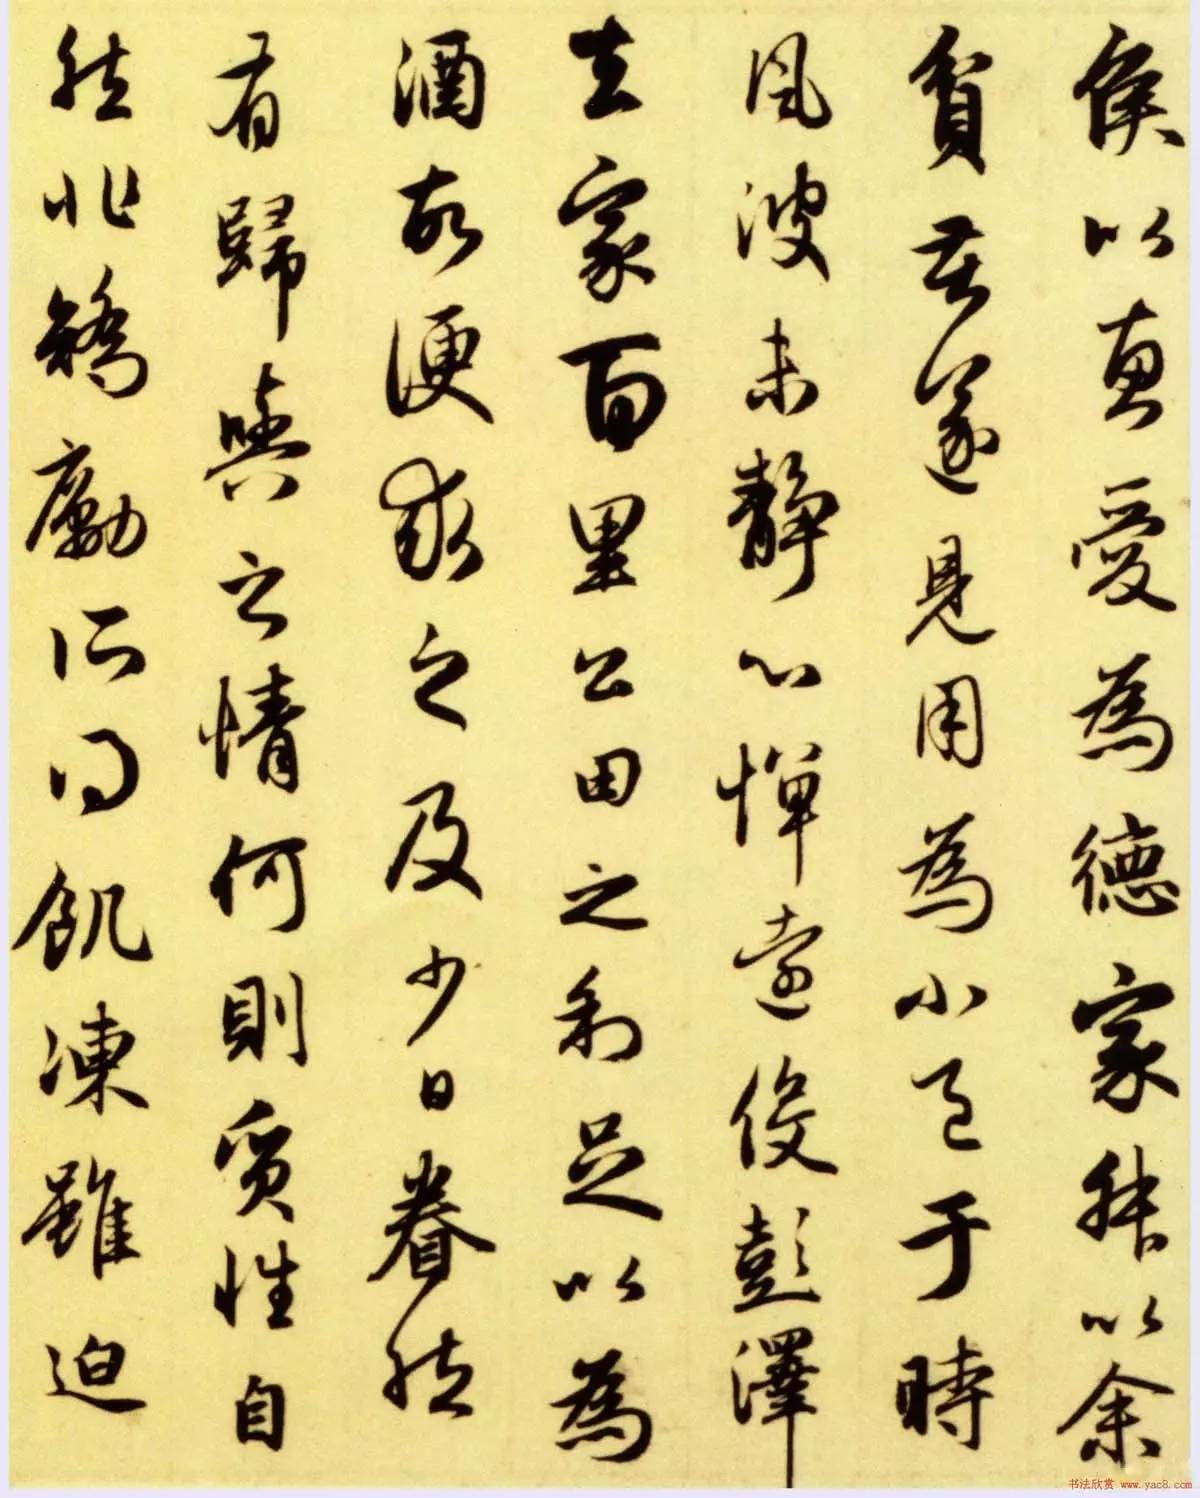 侯以惠愛為德家叔以余
貧苦遂見用為小邑于時
風波未靜心憚遠役彭澤
去家百里公田之利足以為
酒故便求之及少日眷然
有歸與之情何則質性自
然非矯勵所得飢凍雖迫
书法欣赏 www.yac8.com